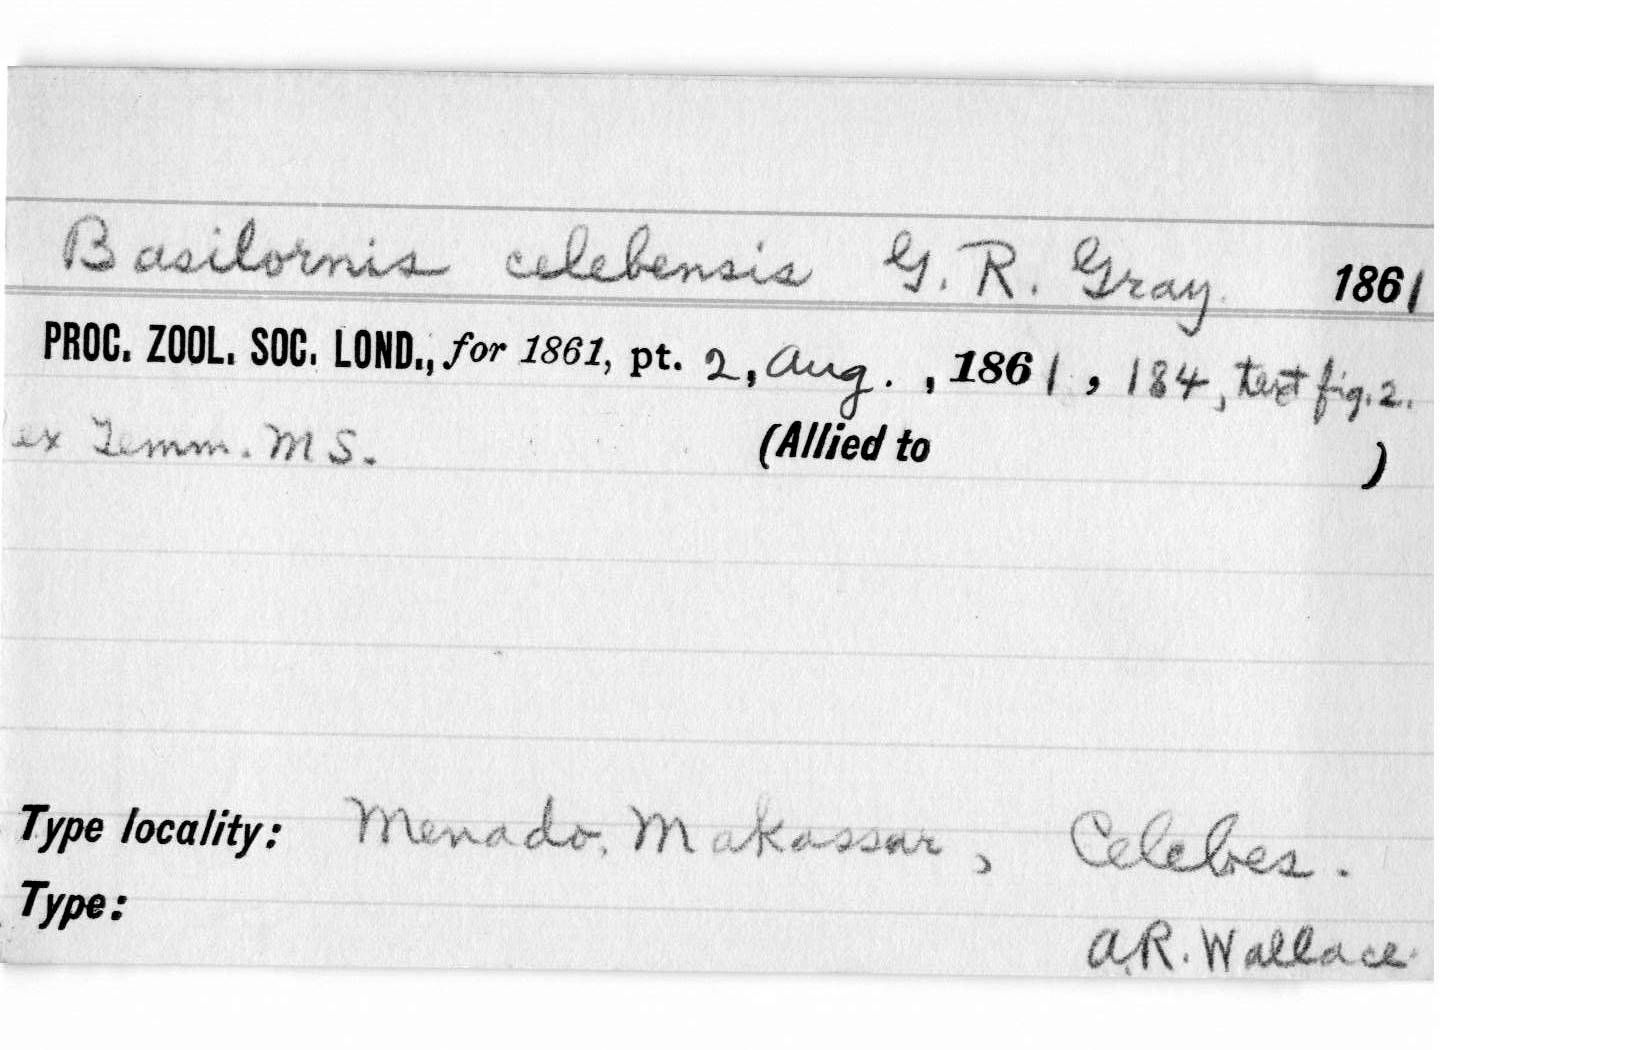 Basilornis celebensis G. R. Gray 1861
PROC. ZOOL. SOC. LOND., for 1861, pt. 2, Aug. , 1861, 184, text fig. 2.
ex Temm. MS. (Allied to )
Type locality: Menado, Makassar, Celebes.
Type:
A.R. Wallace.